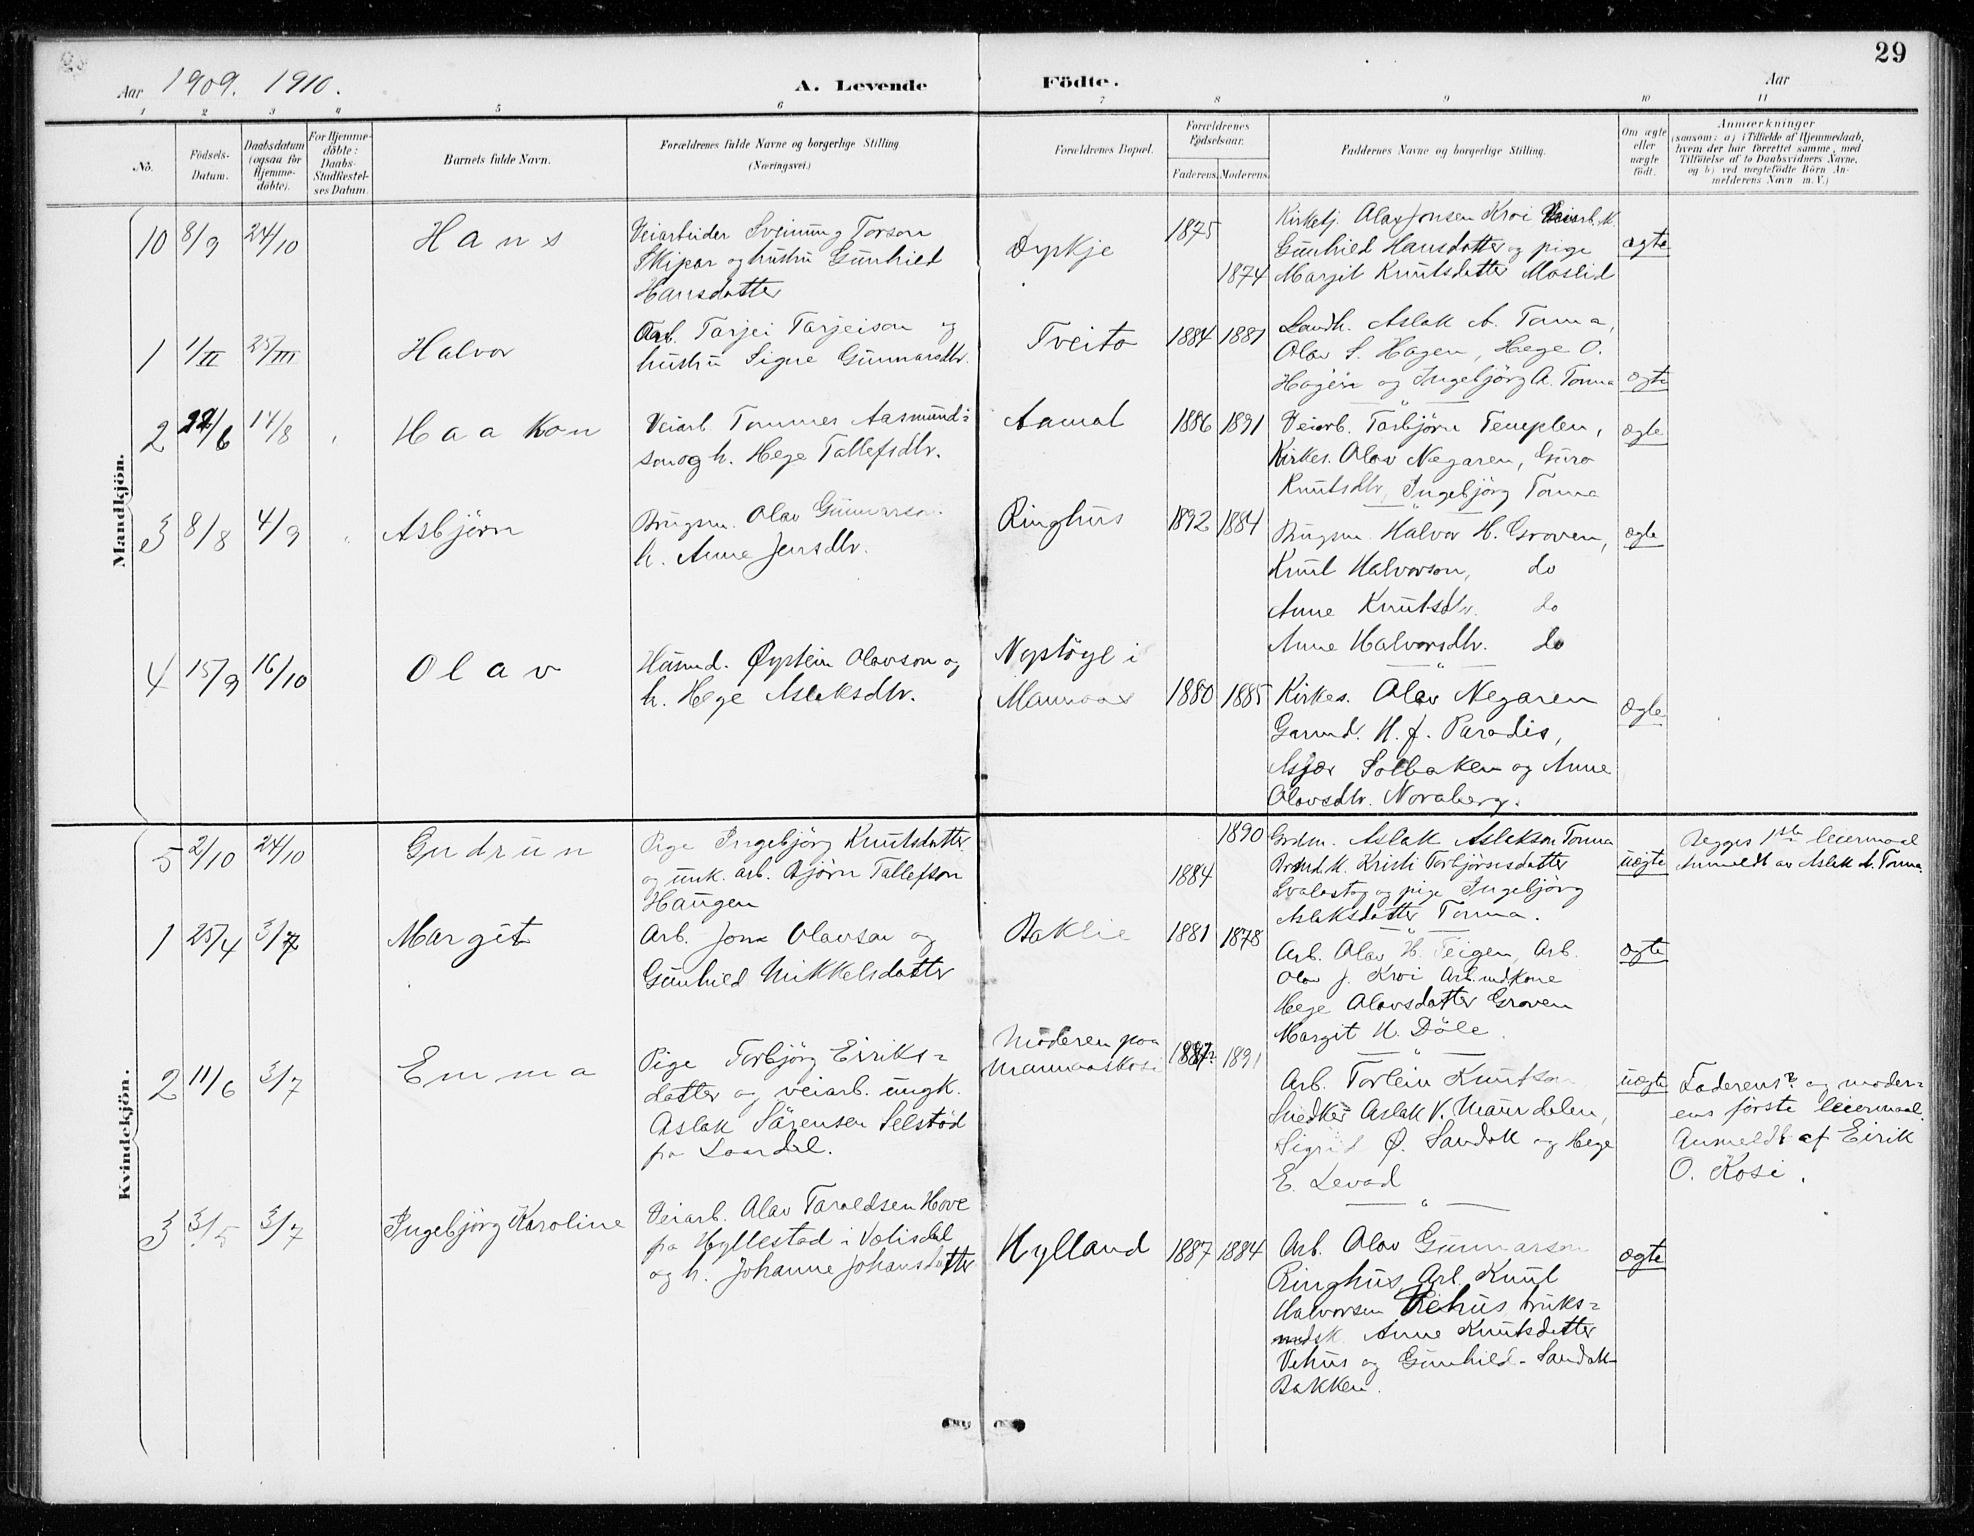 29
Aar 1909. 1910.
A. Levende Födte.
Aar
1 2 3 4 5 6 7 8 9 10 11
No.
Födsels-
Datum.
Daabsdatum
(ogsaa for
Hjemme-
döbte).
For Hjemme-
döbte:
Daabs-
Stadfæstel-
ses Datum.
Barnets fulde Navn.
Forældrenes fulde Navne og borgerlige Stilling
(Næringsvei.)
Forældrenes Bopæl.
Forældrenes
Fødselsaar.
Faderens. Moderens.
Faddernes Navne og borgerlige Stilling.
Om ægte
eller
uægte
født.
Anmærkninger
(saasom: a) i Tilfælde af Hjemmedaab,
hvem der har forrettet samme, med
Tilföielse af to Daabsvidners Navne,
og b) ved uægtefödte Börn An-
melderens Navn m. V.)
Mandkjön.
10 8/9 24/10
Hans
Veiarbeider Sveinung Torson
Skipar og hustru Gunhild
Hansdatter
Dyrkje
1875
1874
Kirketj. Olav Jonsen Kroi Veiarb. K.
Gunhild Hansdatter og pige
Margit Knutsdatter Moslid
ægte
1 1/II 25/III
Halvor
Arb. Tarjei Tarjeison og
hustru Signe Gunnarsdtr.
Tveito
1884 1881
Landh. Aslak A. Tonna,
Olav S. Hagen, Hege O.
Hagen og Ingebjörg A. Tonna
ægte
2 22/6 14/8
Haakon
Veiarb Tommes Aasmund-
son og h. Hege Tallefsdtr.
Aamot
1886 1891
Veiarb. Torbjörn Templen,
Kirkes. Olav Negaren, Guro
Knutsdtr, Ingebjörg Tonna
ægte
3 8/8 4/9
Asbjörn
Brugsm. Olav Gunnarson
h. Anne Jensdtr.
Ringhus
1892 1884
Brugsm. Halvor H. Groven,
Knut Halvorson, do
Anne Knutsdtr. do
Anne Halvorsdtr. do
ægte
4 15/9 16/10
Olav
Husmd. Øystein Olavson og
h. Hege Aslaksdtr.
Nystöyl i
Mannaas
1880 1885
Kirkes. Olav Negaren
Garmd. H. J. Paradis,
Solbaken og Anne
Olavsdtr. Noraberg.
ægte
Kvindekjön.
5 2/10 24/10
Gudrun
Pige Ingebjörg Knutsdatter
og unk. arb. Björn Tallefson
Haugen
1890
1884
Grdm. Aslak Aslakson Tonna
Kristi Torbjörnsdatter
Svalestog og pige Ingebjörg
Aslaksdatter Tonna.
uægte
Begges 1ste leiermaal
Anmeldt av Aslak A. Tonna.
1 25/4 3/7
Margit
Arb. Jon Olavson og
Gunhild Mikkelsdatter
Baklie
1881 1878
Arb. Olav H. Teigen, Arb.
Olav J. Kroi Arb.mdkone
Hege Olavsdatter Groven
Margit H. Döle
ægte
2 11/6 3/7
Emma
Pige Torbjörg Eiriks-
datter og veiarb. ungk.
Aslak Sörensen Selstöd
fra Laardal.
Moderen paa
Mannaaskosi
1887 1891
Arb. Torlein Knutson
Snedker Aslak V. Maurdalen,
Sigrid Ø. Sandok og Hege
E. Levad
uægte
Faderens? og moder-
ens förste leiermaal.
Anmeldt af Eirik
O. Kosi.
3 3/5 3/7
Ingebjörg Karoline
Veiarb. Olav Taraldsen Hove
fra Hyllestad i Vallsdal
og h. Johanne Johansdatter
Hylland
1887 1884
Arb. Olav Gunnarson
Ringhus, Arb. Knut
Halvorsen Vehus bruks-
mdsk. Anne Knutsdatter
Vehus og Gunhild Sandok-
Bakken.
ægte